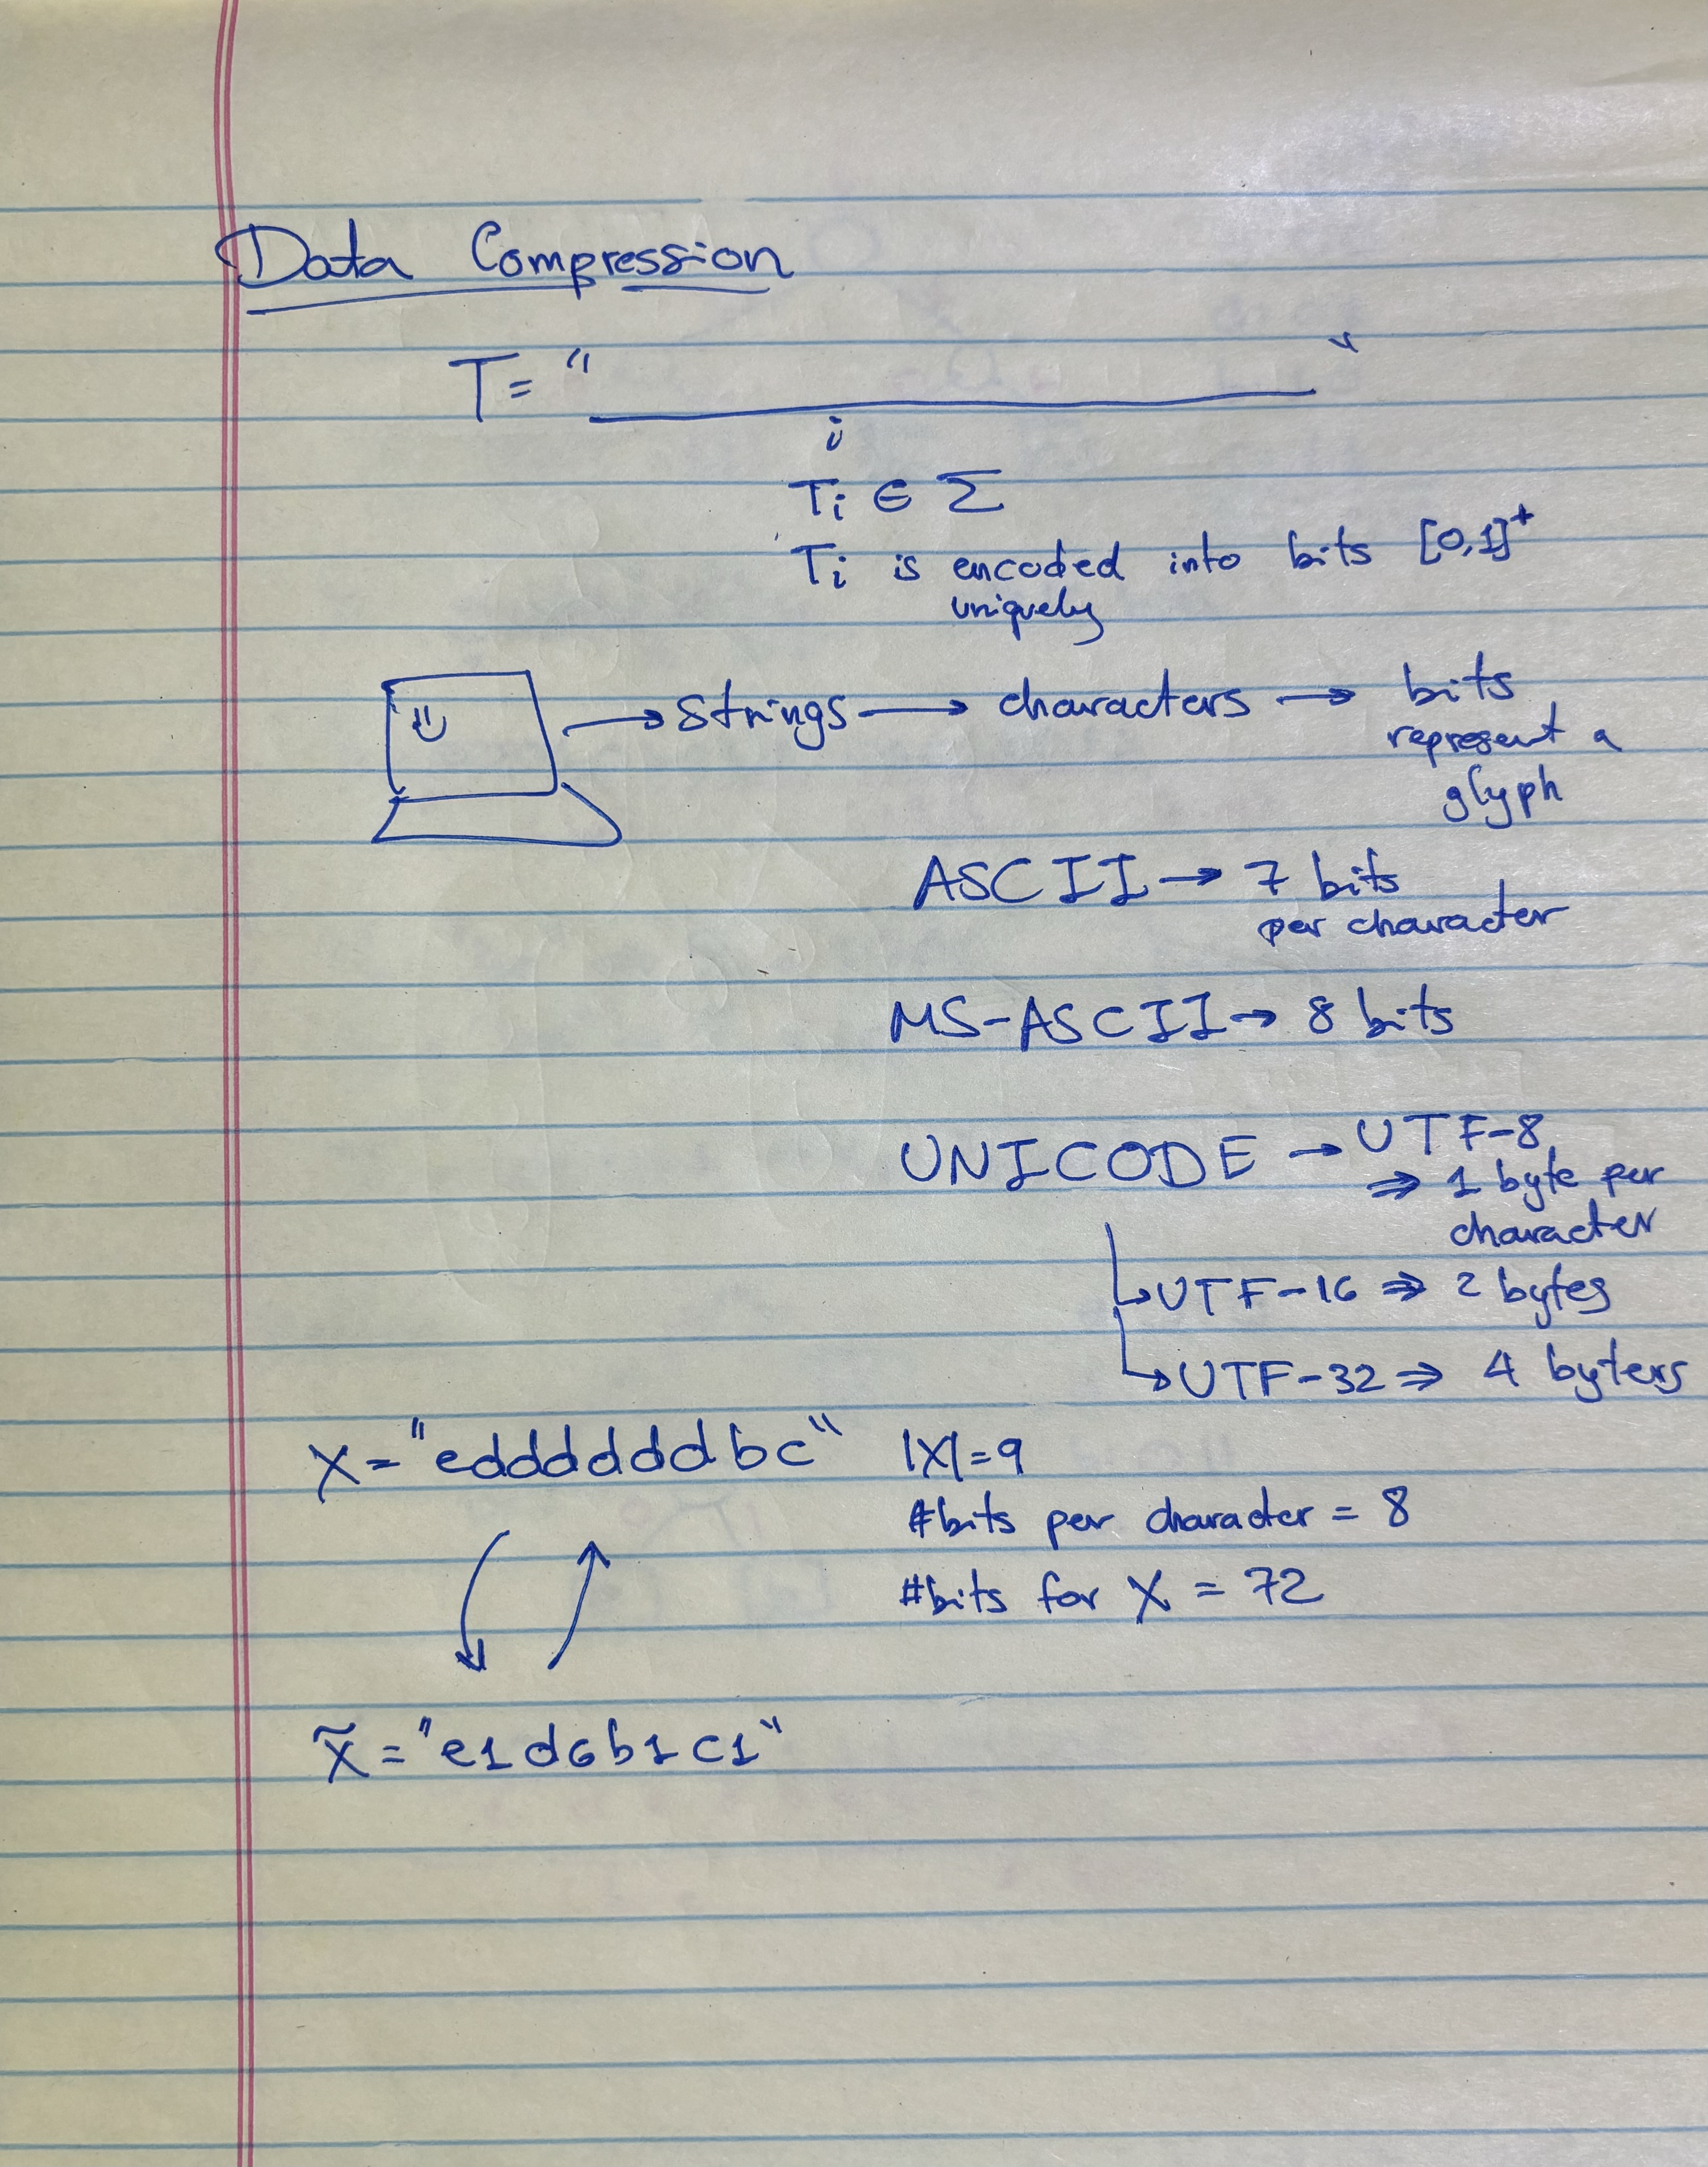 Data Compression
T = " "
i
Ti ∈ Σ
Ti is encoded into bits [0,1]⁺
uniquely
→ strings → characters → bits
represent a
glyph
ASCII → 7 bits
per character
MS-ASCII → 8 bits
UNICODE → UTF-8
⇒ 1 byte per
character
↳ UTF-16 ⇒ 2 bytes
↳ UTF-32 ⇒ 4 byters
X = "eddddddbc" |X| = 9
#bits per character = 8
#bits for X = 72
X̃ = "e1d6b1c1"